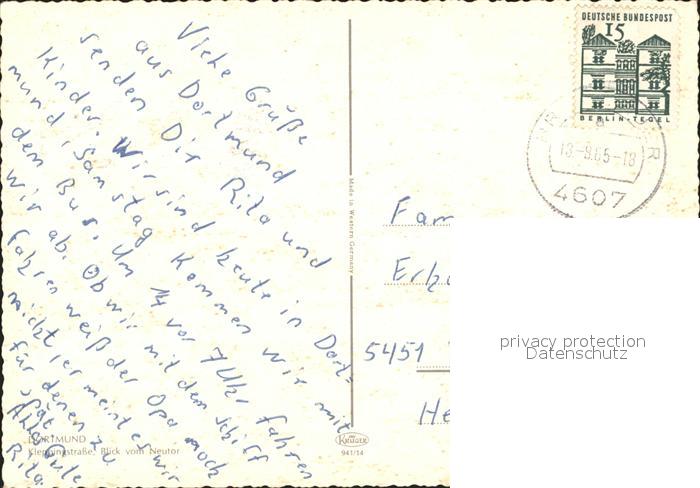 Viele Grüße
aus Dortmund
senden Dir Rita und
Kinder. Wir sind heute in Dort=
mund, Samstag kommen wir mit
dem Bus. Um 14 vor 7 Uhr fahren
wir ab. Ob wir mit dem Schiff
fahren weiß der Opa noch
nicht, er meint es wir
für denen zu
spät
Alles Gute
Rita.
DORTMUND
Kleppingstraße, Blick vom Neutor
Made in Western Germany
KRÜGER
941/14
DEUTSCHE BUNDESPOST
15
BERLIN-TEGEL
13.-9.65-18
4607
Fam
5451
He
privacy protection
Datenschutz